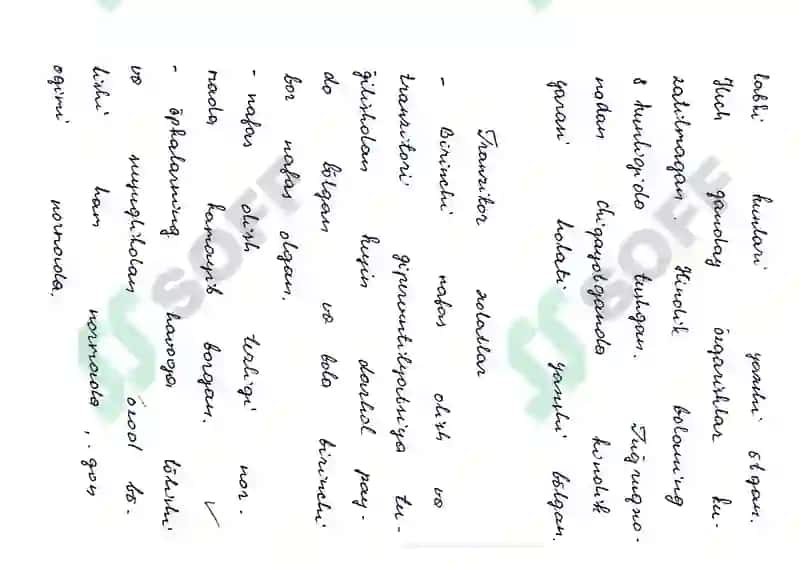 labki kunlari yaxshi o'tgan.
Hech qanday o'zgarishlar ku-
zatilmagan. Kindik bolaning
8 kunligida tushgan. Tug'ruqxo-
nadan chiqayotganda kindik
yarasi holati yaxshi bo'lgan.
Tranzitor xolatlar
- Birinchi nafas olish va
tranzitori giperventilyatsiya tu-
g'ilishdan keyin darhol pay-
do bo'lgan va bola birinchi
bor nafas olgan.
- nafas olish tezligi nor-
mada kamayib borgan.
- o'pkalarning havoga to'lishi
va suyuqlikdan ozod bo'-
lishi ham normada, qon
oqimi normada.
SOFF
SOFF